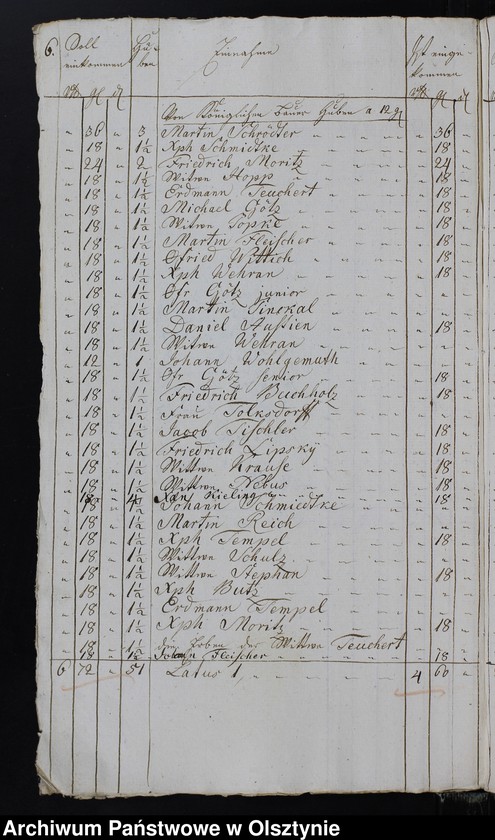 6. Soll einkommen Huben Einnahme Ist einge kommen
gl gl
Von Königlichen Bauer Huben a 12 gl
36 3 Martin Schrödter 36
18 1½ Xph Schmidtke 18
24 2 Friedrich Moritz 24
18 1½ Witwe Hopp 18
18 1½ Erdmann Teuchert 18
18 1½ Michael Götz 18
18 1½ Witwe 18
18 1½ Martin Fleischer 18
18 1½ Gfried Wittich 18
18 1½ Xph Wehran 18
18 1½ Gfr Götz junior
18 1½ Martin
18 1½ Daniel Aussien 18
18 1½ Witwe Wehran
12 1 Johann Wohlgemuth
18 1½ Gfr Götz senior 18
18 1½ Friedrich Buchholz 18
18 1½ Frau Tolksdorff
18 1½ Jacob Tischler 18
18 1½ Friedrich Lipsky 18
18 1½ Wittwe Krause 18
18 1½ Wittwe Nebus 18
Kieling
18 1½ Johann Schmiedtke
18 1½ Martin Reich
18 1½ Xph Tempel 18
18 1½ Wittwe Schulz
18 1½ Wittwe Stephan 18
18 1½ Xph Butz
18 1½ Erdmann Tempel
18 1½ Xph Moritz 18
18 1½ der Wittwe Teuchert
Fleischer 18
6 72 51 Latus 4 60
Archiwum Państwowe w Olsztynie